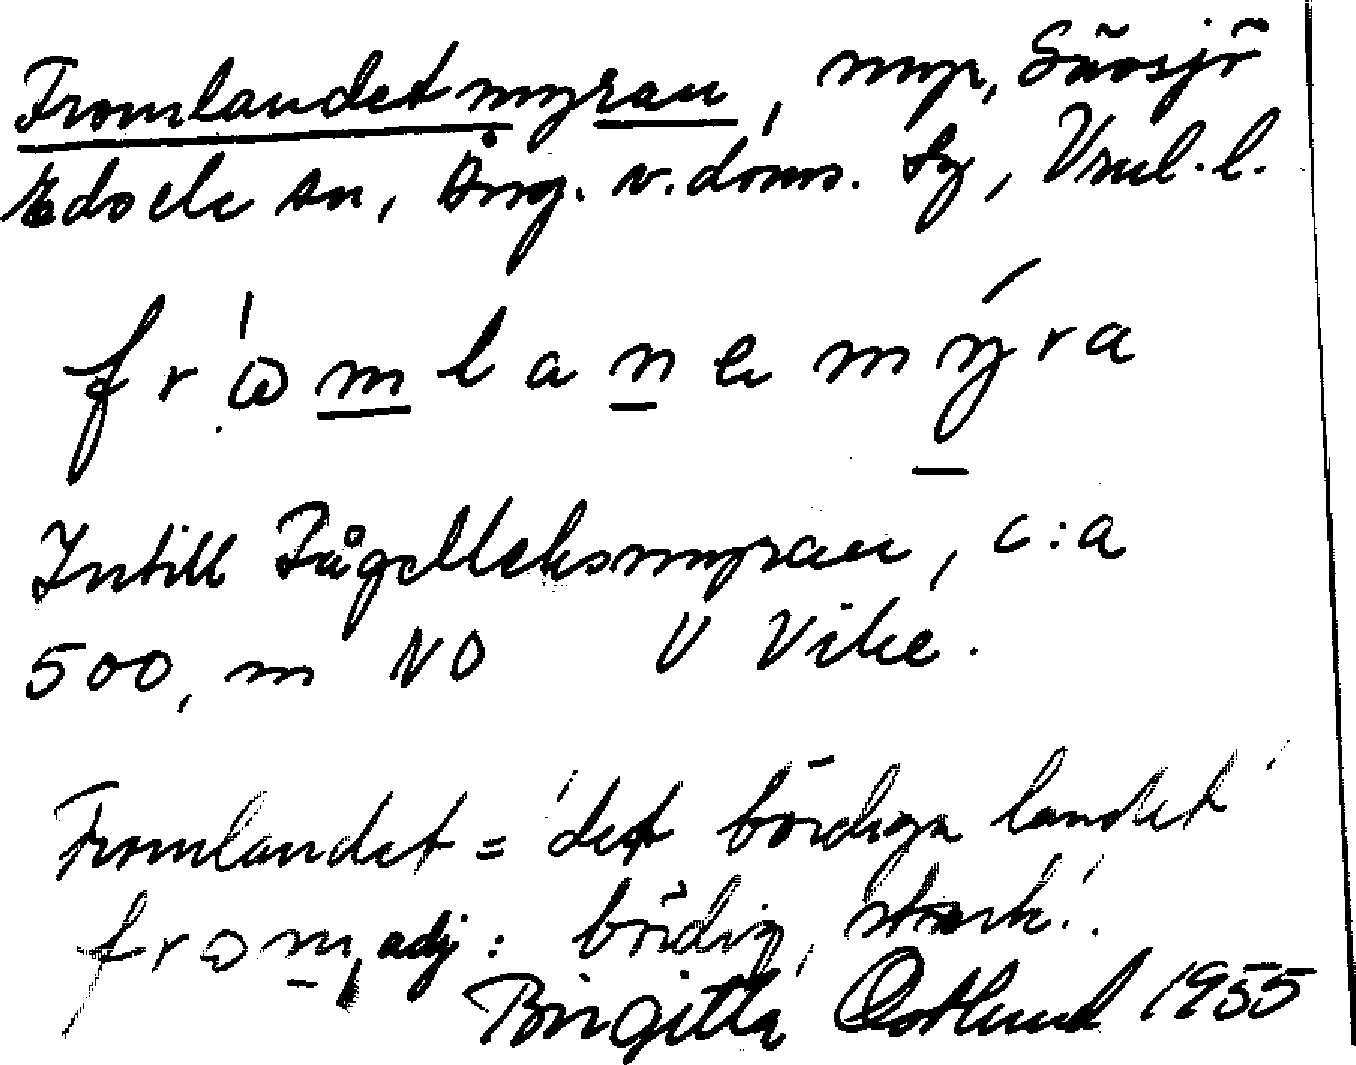 Fromlandetmyran, myr, Sävsjö
Edsele sn, Ång. v. doms. sg, Vnl. l.
fròmlanemýra
Intill Fågelleksmyran, c:a
500 m NO V Vike.
Fromlandet = 'det bördiga landet'
from, adj: bördig, stark'.
Birgitta Östlund 1955